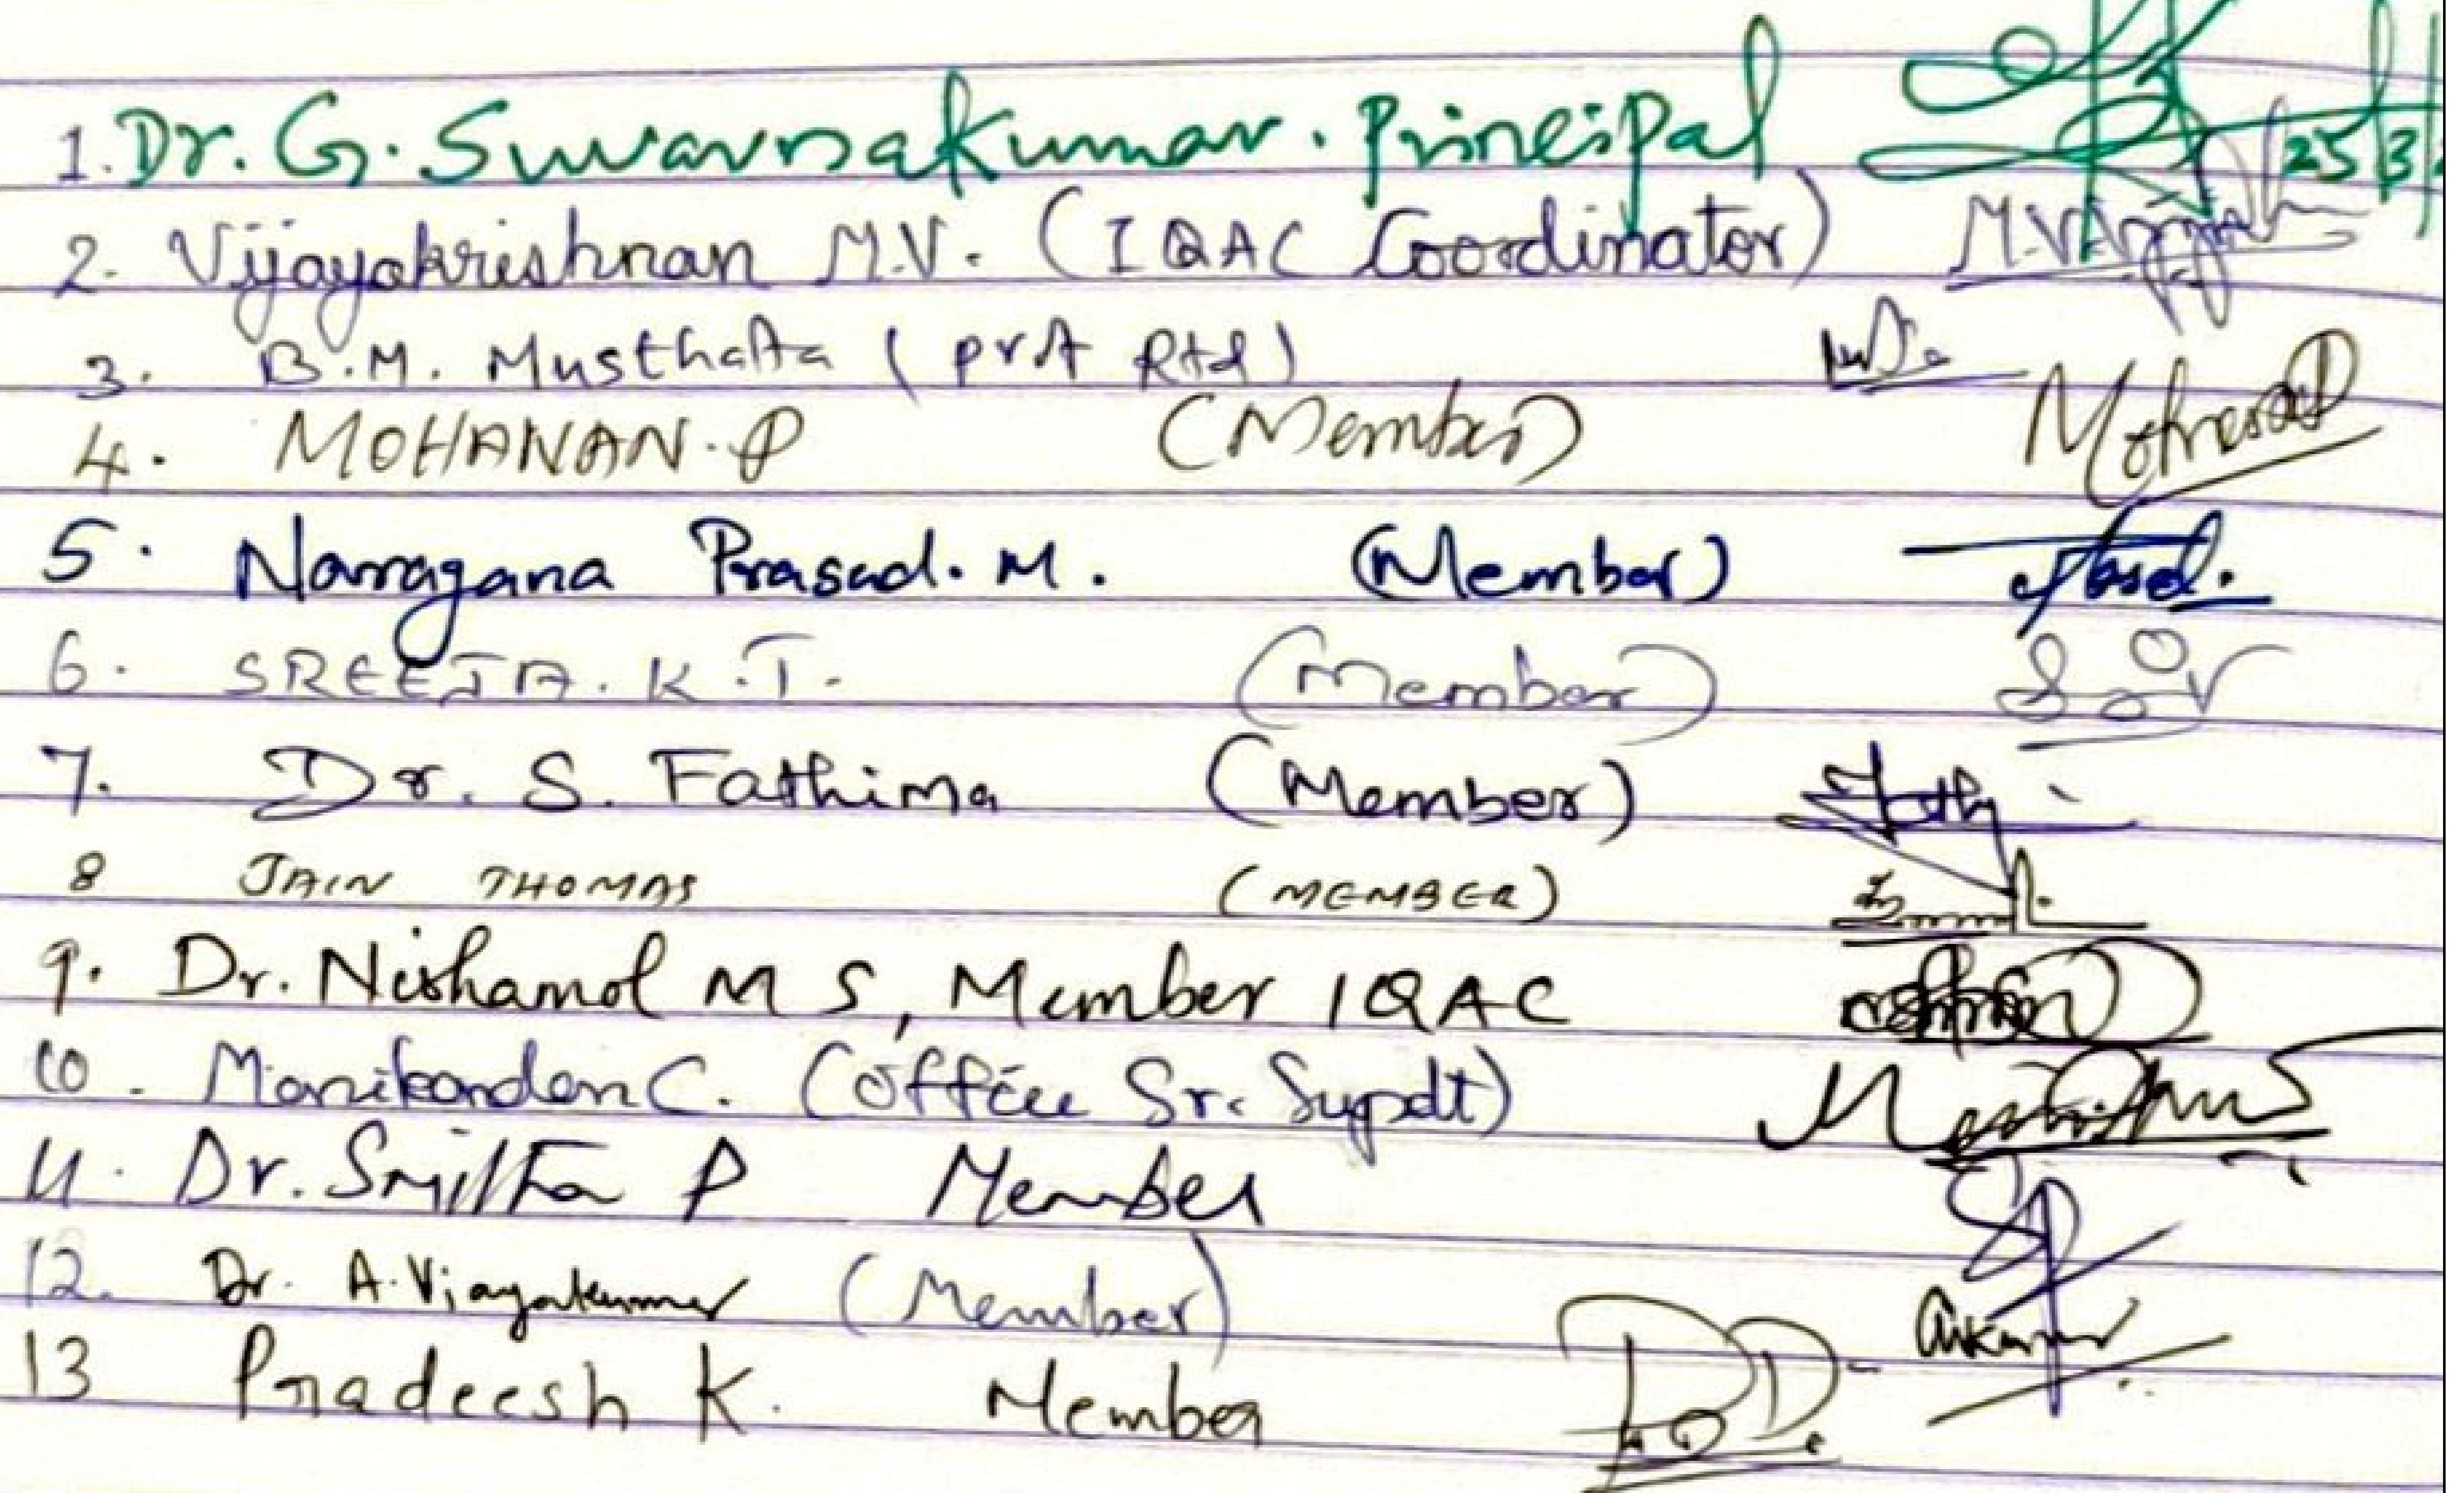 1. Dr. G. Suvarnakumar. Principal 25/3/
2. Vijayakrishnan M.V. (IQAC Coordinator)
3. B.M. Musthafa (Prf Rtd)
4. MOHANAN.P (Member)
5. Narayana Prasad. M. (Member)
6. SREEJA. K.T. (Member)
7. Dr. S. Fathima (Member)
8 JAIN THOMAS (MEMBER)
9. Dr. Nishamol M S, Member IQAC
10. Manikandan C. (Office Sr. Supdt)
11. Dr. Smitha P Member
12. Dr. A. Vijayakumar (Member)
13 Pradeesh K. Member